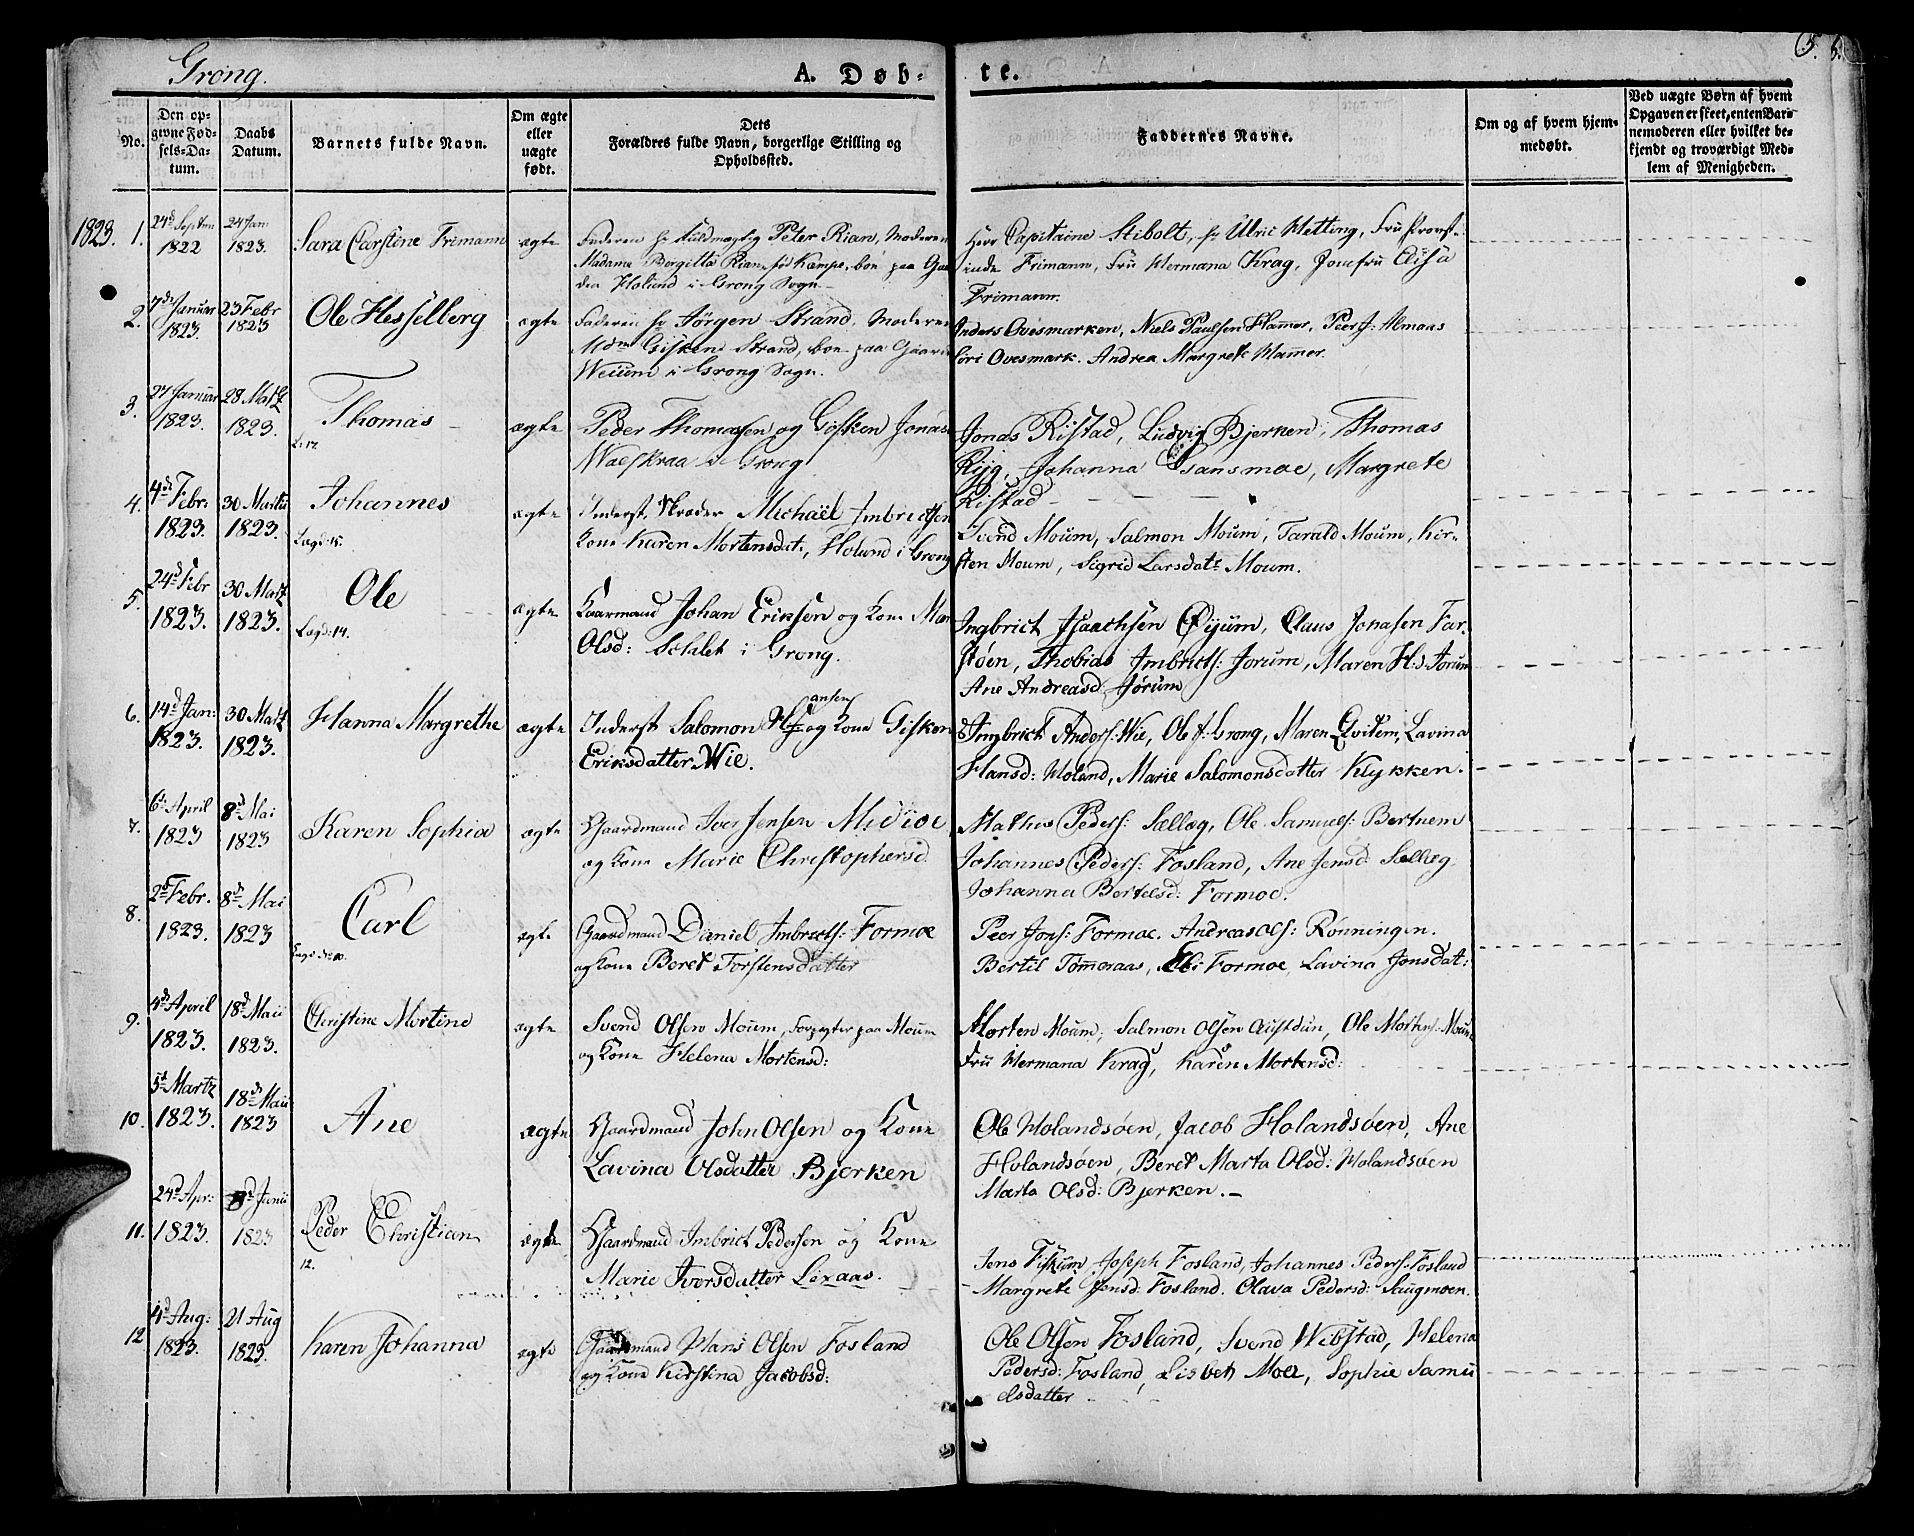 Grong.
A. Døb-
te.
5. 5.
No.
Den op-
givne Fød-
sels-Da-
tum.
Daabs
Datum.
Barnets fulde Navn.
Om ægte
eller
uægte
født.
Dets
Forældres fulde Navn, borgerlige Stilling og
Opholdsted.
Faddernes Navne.
Om og af hvem hjem-
medøbt.
Ved uægte Børn af hvem
Opgaven er skeet, enten Bar-
nemoderen eller hvilket be-
kjendt og troværdigt Med-
lem af Menigheden.
1823. 1.
24d Septem
1822
24 Jan
1823.
Sara Carstine Frimann
ægte
Faderen Hr Fuldmægtig Peter Rian, Moderen
Madame Borgitta Rian, fød Kempe, boe paa Gaar
den Holund i Grong Sogn
Herr Capitaine Stibolt, Hr Ulric Hetting, Fru Provst-
inde Frimann, Fru Hermana Krag, Jomfru Elisa
Frimann.
2.
7de Januar
1823.
23 Febr
1823
Ole Hesselberg
ægte
Faderen Hr Jörgen Strand, Moderen
Mdm Gisken Strand, boe paa Gaard
Weium i Grong Sogn.
Anders Ovesmarken, Niels Paulsen Hammer, Peer J: Almaas
Gori Ovesmark. Andrea Margrete Hammer.
3.
27 Januar
1823.
28 Martz
1823.
Thomas
L: 17.
ægte
Peder Thomassen og Gisken Jonas
Waeskraa i Grong
Jonas Ristad, Ludvig Bjerken, Thomas
Johanna Gansmoe, Margrete
Ristad
4.
4de Febr:
1823.
30 Martii
1823.
Johannes
Lægd: 15.
ægte
Inderst, Skræder Michaël Imbrictsen
Kone Karen Mortensdat:, Holund i Grong
Svend Moum, Salmon Moum, Tarald Moum, Kir-
sten Moum, Sigrid Larsdatr Moum.
5.
24d Febr
1823.
30 Martz
1823.
Ole
Lægd: 14.
ægte
Gaarmand Johan Eriksen og Kone Mar
Olsd: Schlet i Grong.
Ingbrict Isaachsen Øyum, Claus Jonasen Far-
støen, Thobias Imbricts: Jorum, Maren H:s Jorum
Ane Andreasd Jørum
6.
14d Jan:
1823.
30 Martz
1823.
Hanna Margrethe
ægte
Inderst Salomon Hansen og Kone Gisken
Eriksdatter Wie.
Ingbrict Anders: Wie, Ole J: Grong, Maren Qvitem, Lavina
Hansd: Holand, Marie Salomonsdatter Klykken.
7.
6te April
1823
8d Mai
1823
Karen Sophia
ægte
Gaardmand Iver Jensen Midioe
og Kone Marie Christophersd
Mathis Peders: Sælleg, Ole Samuels: Bertnem
Johannes Peders: Fosland, Ane Jensd: Selleg
Johanna Bertelsd: Formoe.
8.
2d Febr.
1823.
8d Mai
1823
Carl
Lægd No 10.
ægte
Gaardmand Daniel Imbricts: Formoe
og Kone Beret Torstensdatter
Peer Jons: Formoe. Andreas Ols: Rönningen.
Bertil Tømeraas, Eli Formoe, Lavina Jonsdat:
9.
4d April
1823.
18d Maii
1823.
Christine Mortine
ægte
Svend Olsen Moum, Forpagter paa Moum
og Kone Helena Mortensd:
Morten Moum, Salmon Olsen Austdun, Ole Mortens: Moum
Fru Hermana Krag, Karen Mortensd:
10.
5d Martz
1823.
18d Maii
1823
Ane
ægte
Gaardmand John Olsen og Kone
Lavina Olsdatter Bjerken
Ole Holandsöen, Jacob Holandsöen, Ane
Holandsöen, Beret Marta Olsd: Holandsöen
Marta Olsd: Bjerken.
11.
24d Apr:
1823.
8d Junii
1823
Peder Christian
12.
ægte
Gaardmand Imbrict Pedersen og Kone
Marie Iversdatter Leraas.
Jens Fiskum, Joseph Fosland, Johannes Peders: Fosland
Margrete Jensd: Fosland. Olava Pedersd: Saugmoen.
12
4d Aug:
1823.
21 Aug
1823.
Karen Johanna
ægte
Gaardmand Hans Olsen Fosland
og Kone Kirstina Jacobsd:
Ole Olsen Fosland, Svend Wibstad, Helena
Pedersd: Fosland, Lisbeth Moe, Sophie Samu
elsdatter